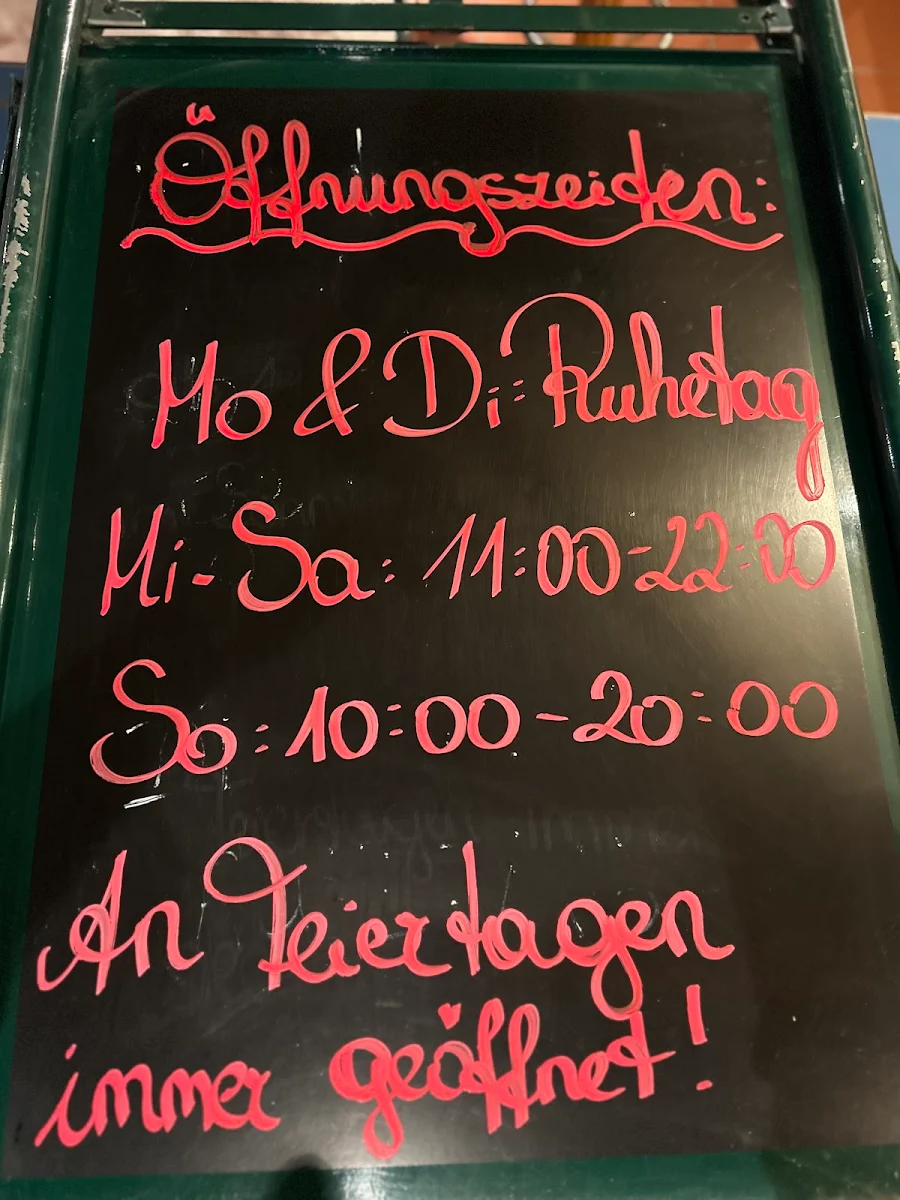 Öffnungszeiten:
Mo & Di: Ruhetag
Mi-Sa: 11:00-22:00
So: 10:00-20:00
An Feiertagen
immer geöffnet!